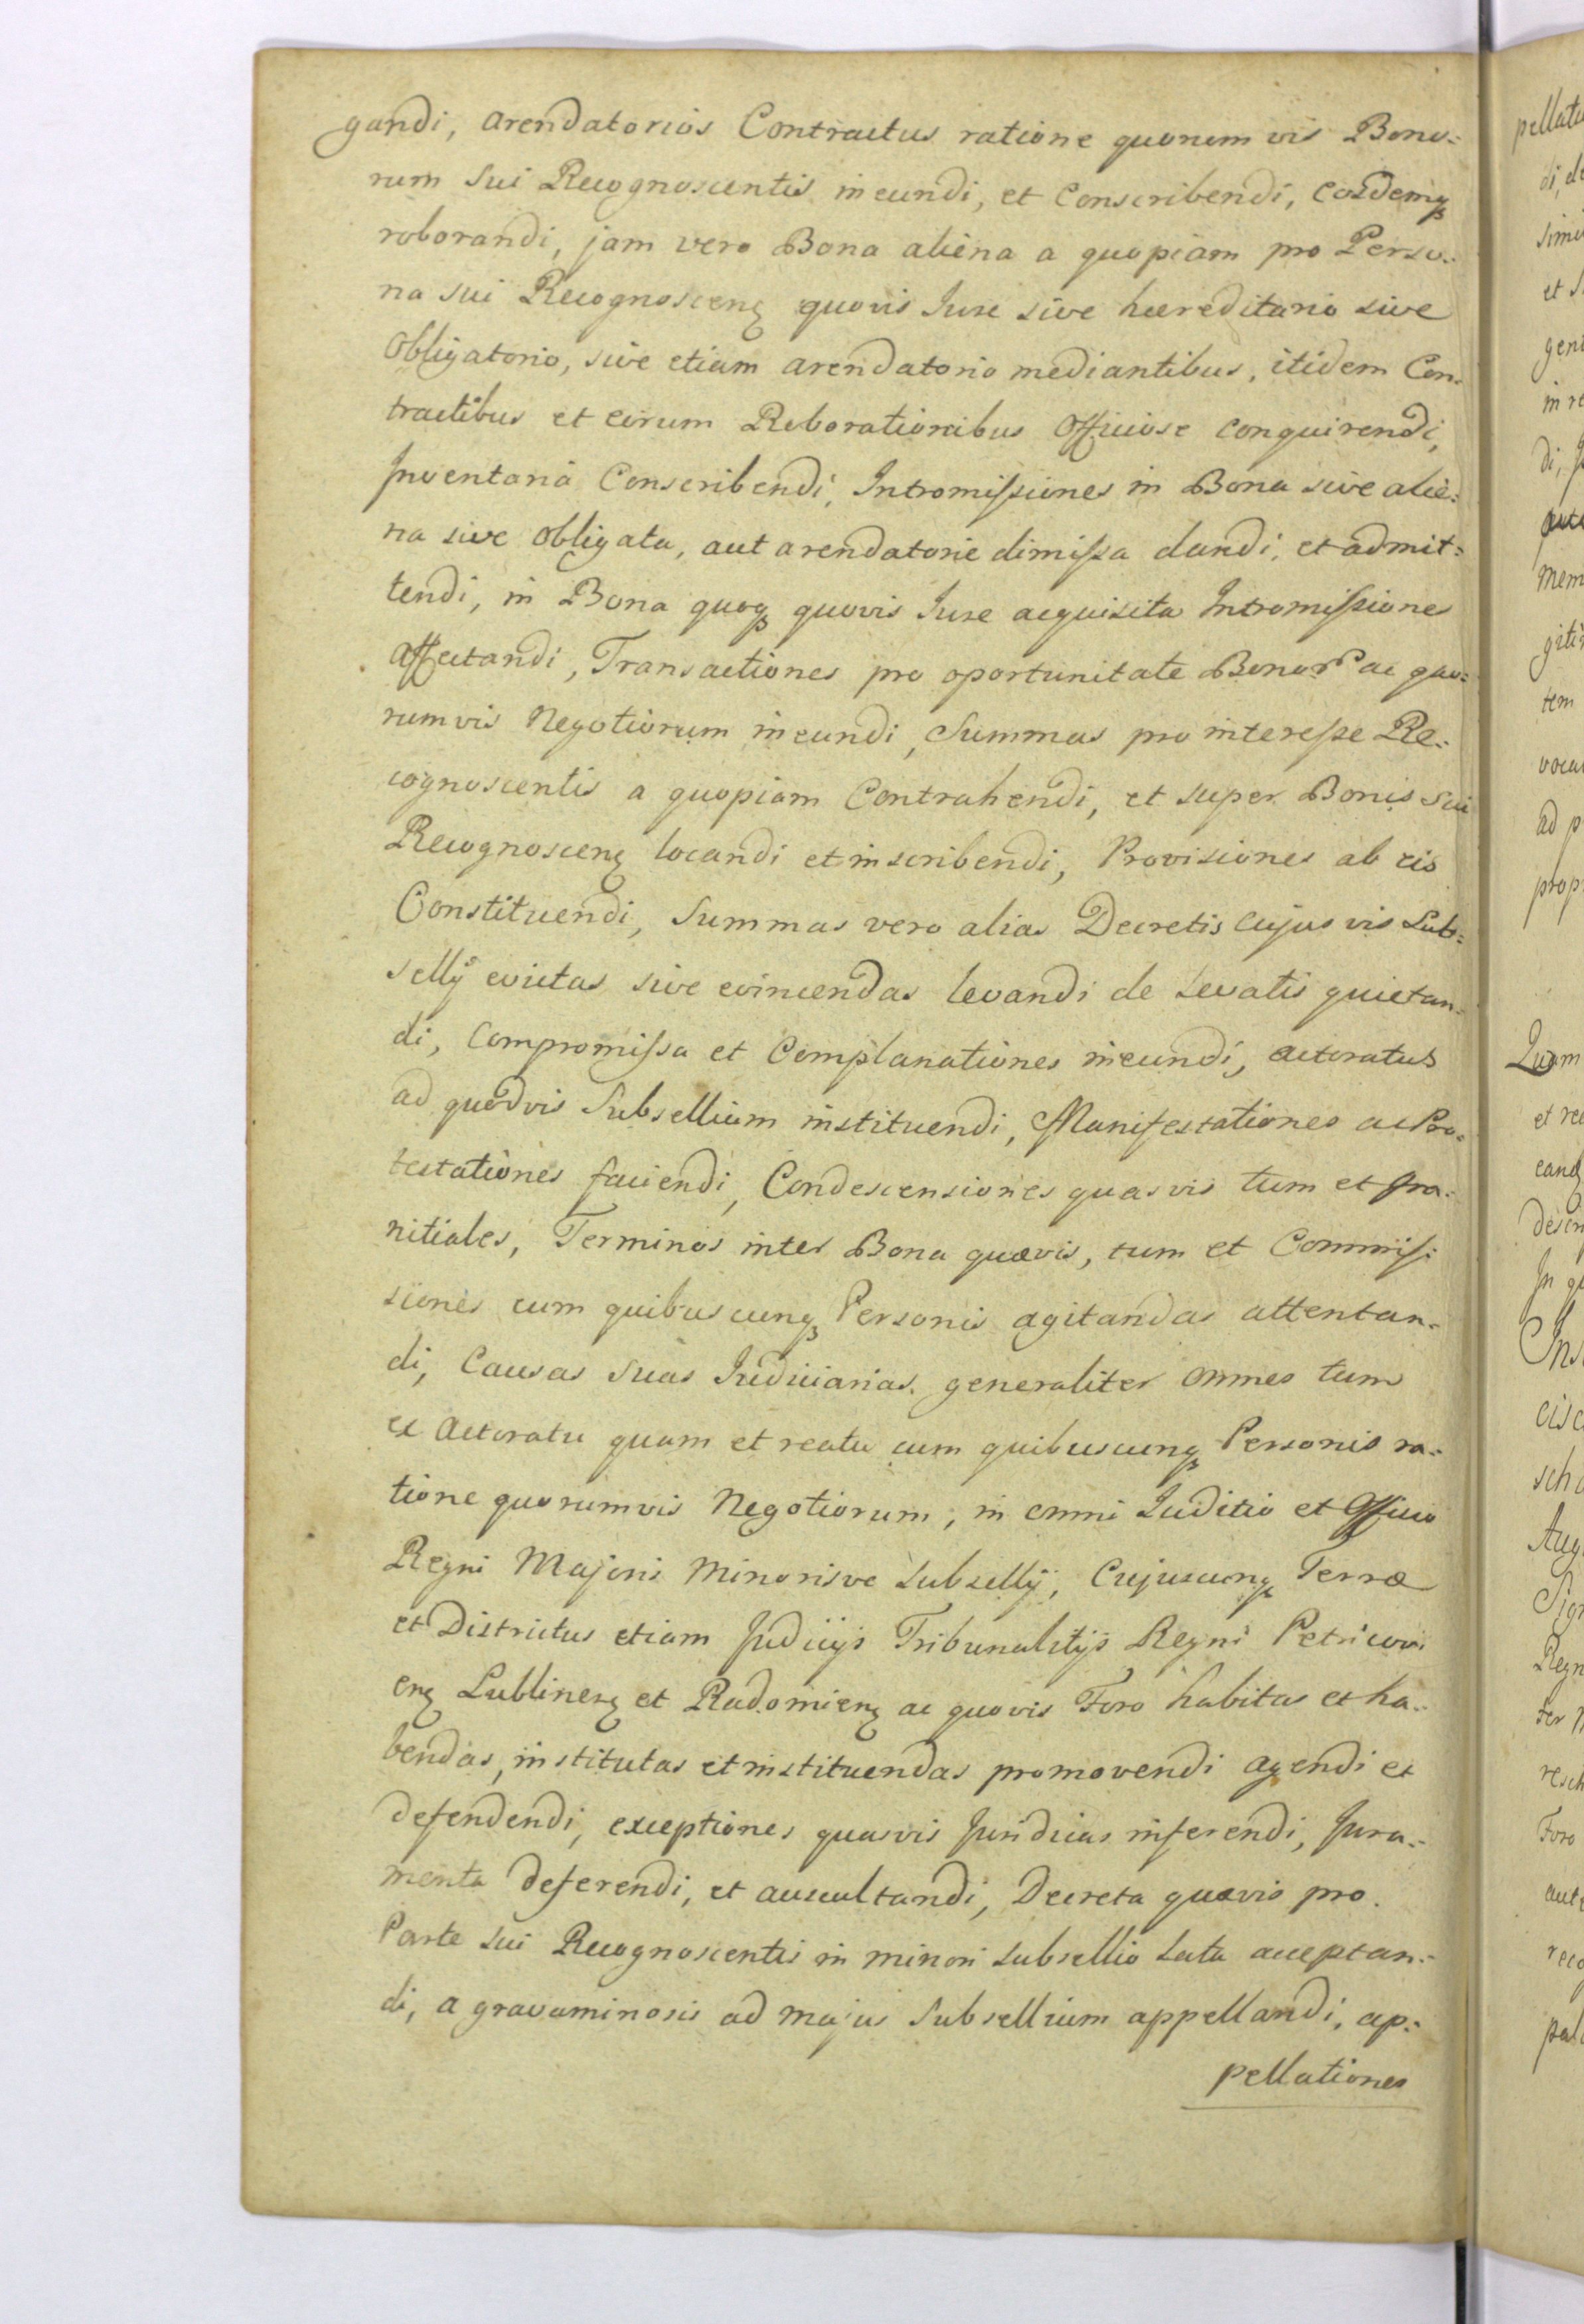 gandi, arendatorios Contractus ratione quorum vis Bono-
rum sui Recognoscentis ineundi, et Conscribendi, eosdemqꝫ
roborandi, jam vero Bona aliena a quopiam pro Perso-
na sui Recognoscenꝫ quovis Jure sive hæreditario sive
Obligatorio, sive etiam arendatorio mediantibus, itidem Con-
tractibus et eorum Roborationibus Officiose conquirendi,
Inventaria Conscribendi, Intromiſsiones in Bona sive alie-
na sive Obligata, aut arendatorie dimiſsa dandi, et admit-
tendi, in Bona quoqꝫ quovis Jure acquisita Intromiſsiones
Affectandi, Transactiones pro oportunitate Bonor ac quo-
rumvis Negotiorum ineundi, Summas pro intereſse Re-
cognoscentis a quopiam Contrahendi, et super Bonis sui
Recognoscenꝫ locandi et inscribendi, Provisiones ab eis
Constituendi, Summas vero alias Decretis cujus vis Sub-
sellÿ evictas sive evincendas levandi de Levatis quietan-
di, Compromiſsa et Complanationes ineundi, actoratus
ad quodvis Subsellium instituendi, Manifestationes ac Pro-
testationes faciendi, Condescensiones quasvis tum et gra-
nitiales, Terminos inter Bona quævis, tum et Commiſ-
siones cum quibuscunqꝫ Personis agitandas attentan-
di, Causas suas Judiciarias generaliter omnes tum
ex Actoratu quam et reatu cum quibuscunqꝫ Personis ra-
tione quorumvis Negotiorum, in omni Juditio et Officio
Regni Majoris Minorisve Subsellÿ, Cujuscunqꝫ Terræ
et Districtus etiam Judicÿs Tribunalitÿs Regni Petricovi
enꝫ Lublinenꝫ et Radomienꝫ ac quovis Foro habitas et ha-
bendas, institutas et instituendas promovendi agendi et
defendendi, exceptiones quasvis Juridicas inferendi, Jura-
menta deferendi, et auscultandi, Decreta quævis pro
Parte sui Recognoscentis in minori Subsellio Lata acceptan-
di, a gravaminosis ad majus Subsellium appellandi, ap-
pellationes